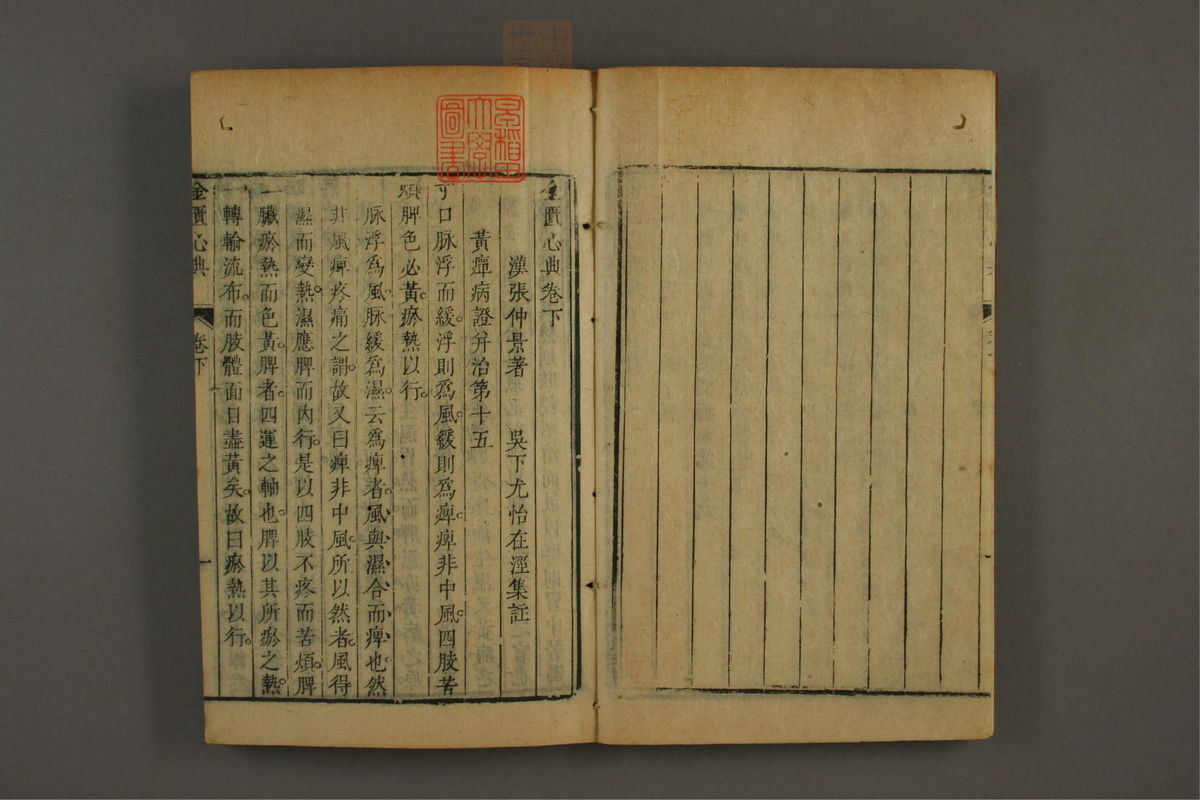 金匱心典卷下
漢張仲景著　吳下尤怡在涇集註
黃癉病證幷治第十五
寸口脉浮而緩。浮則爲風。緩則爲痺。痺非中風。四肢苦
煩。脾色必黃。瘀熱以行。
脉浮爲風。脉緩爲濕。云爲痺者。風與濕合而痺也。然
非風痺疼痛之謂。故又曰痺非中風。所以然者。風得
濕而變熱。濕應脾而內行。是以四肢不疼而苦煩。脾
臟瘀熱而色黃。脾者。四運之軸也。脾以其所瘀之熱。
轉輸流布。而肢體面目盡黃矣。故曰瘀熱以行。
金匱心典　卷下　一
早稻田大學圖書